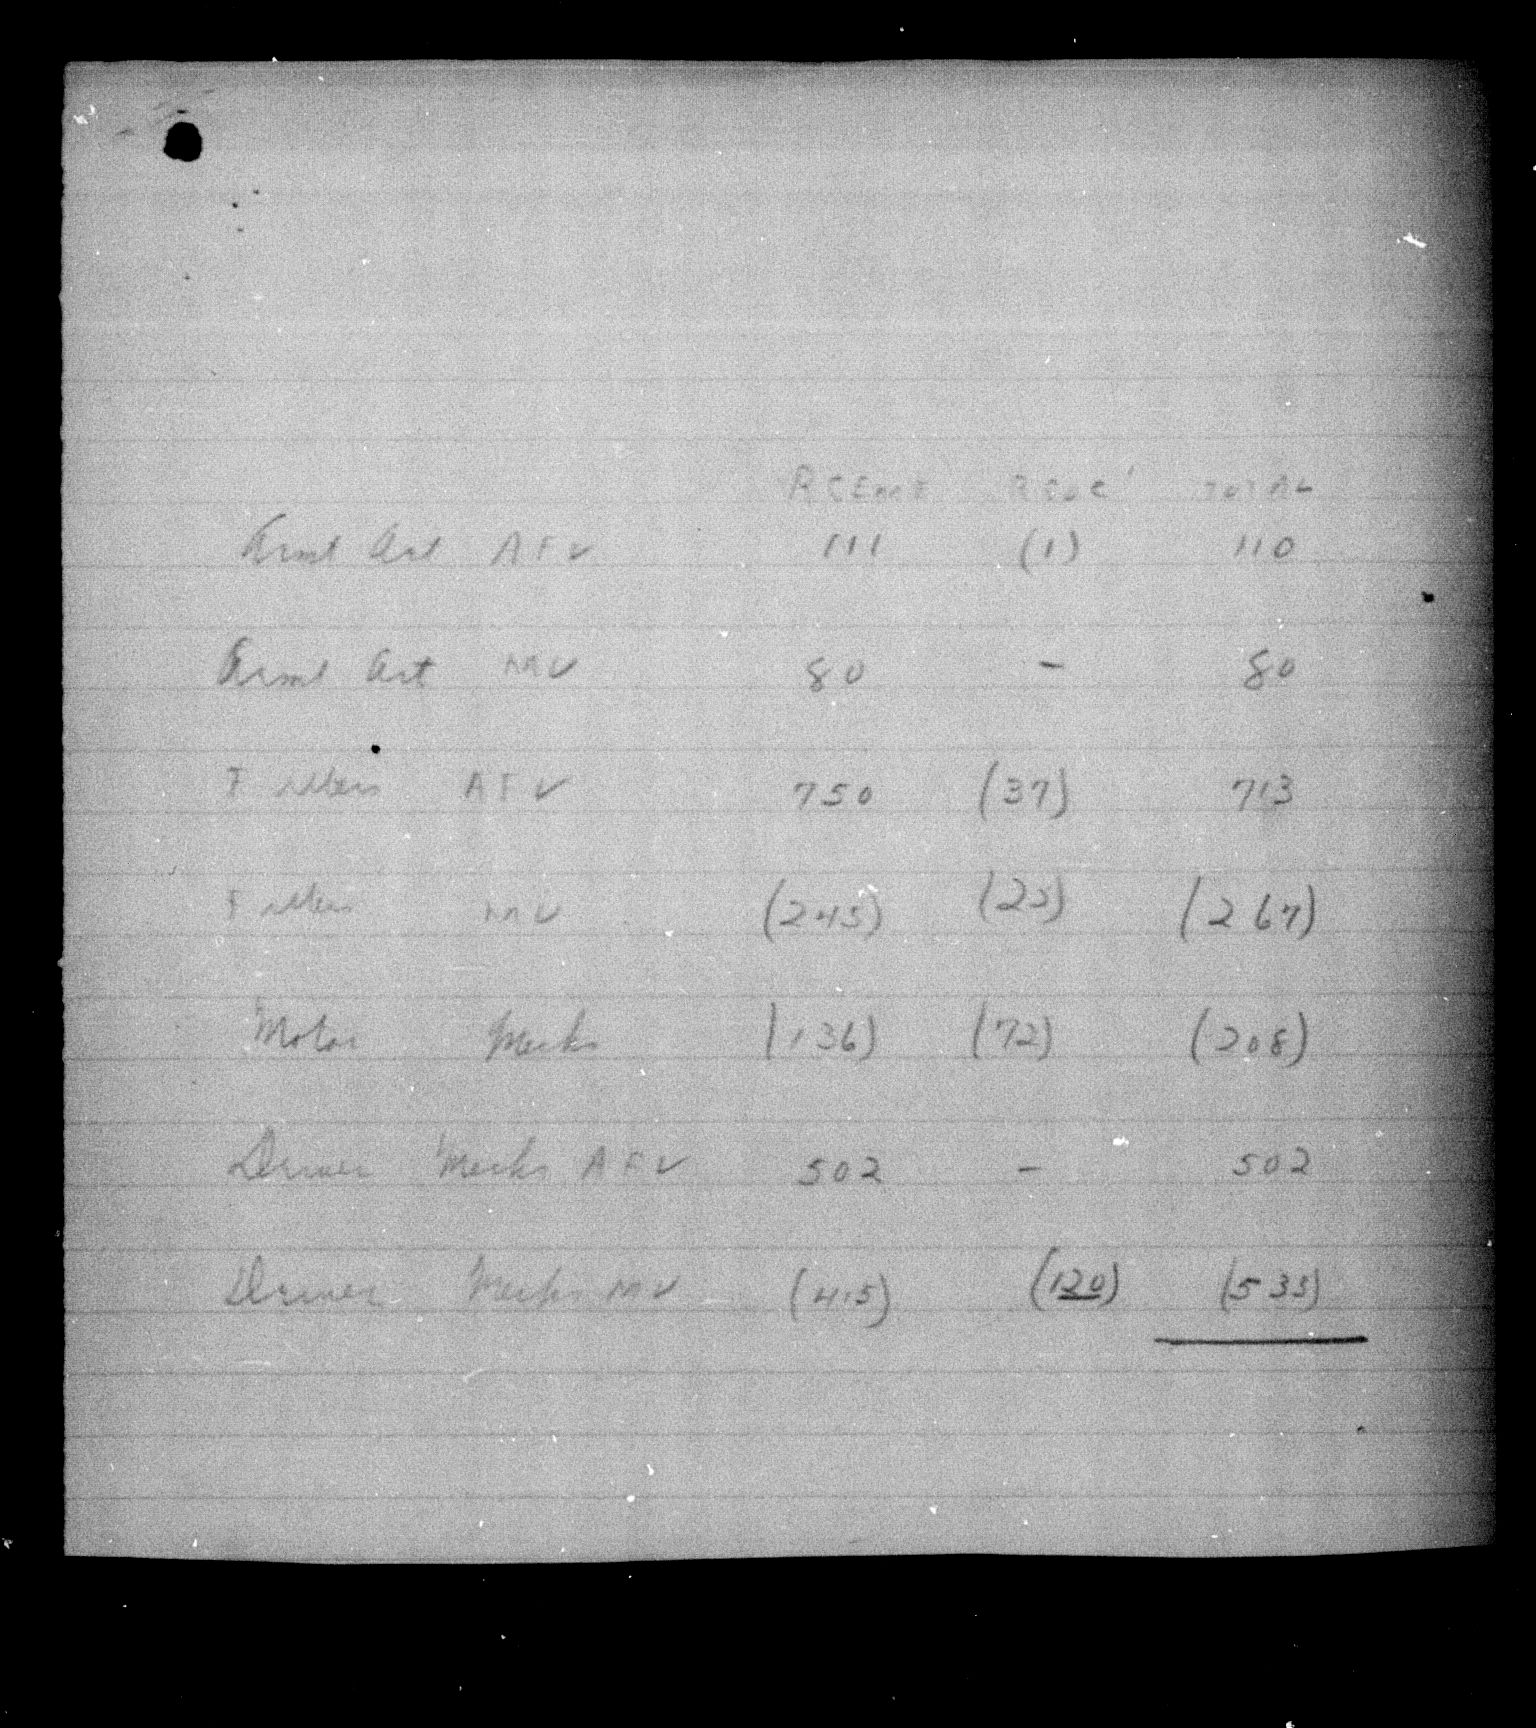 RCEME RCOC TOTAL
Armt Art AFV 111 (1) 110
Armt Art MV 80 - 80
Fitters AFV 750 (37) 713
Fitters MV (245) (22) (267)
Motor Mechs (136) (72) (208)
Driver Mechs AFV 502 - 502
Driver Mechs MV (415) (120) (535)